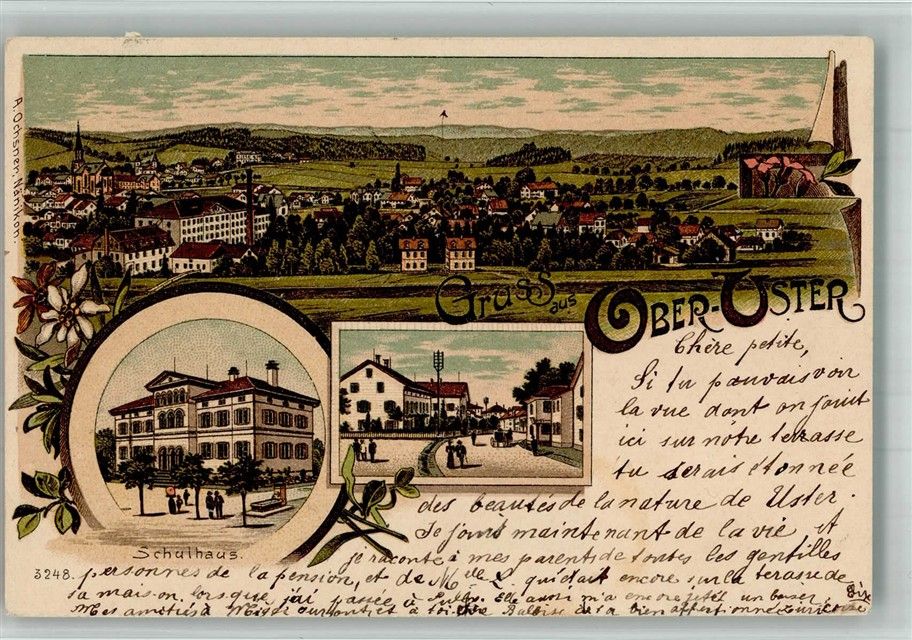 A. Ochsner, Nänikon.
Gruss aus OBER-USTER
Chère petite,
Si tu pouvais voir
la vue dont on jouit
ici sur nôtre terrasse
tu serais étonnée
des beautés de la nature de Uster.
Je jouis maintenant de la vie et
je raconte à mes parents de toutes les gentilles
Schulhaus.
3248.
personnes de la pension, et de Melle L. qui était encore sur la terasse de
sa maison, lorsque j'ai passée à Elle aussi m'a encore jetée un baiser.
Mes amitiés à et à toi bien affectionnée